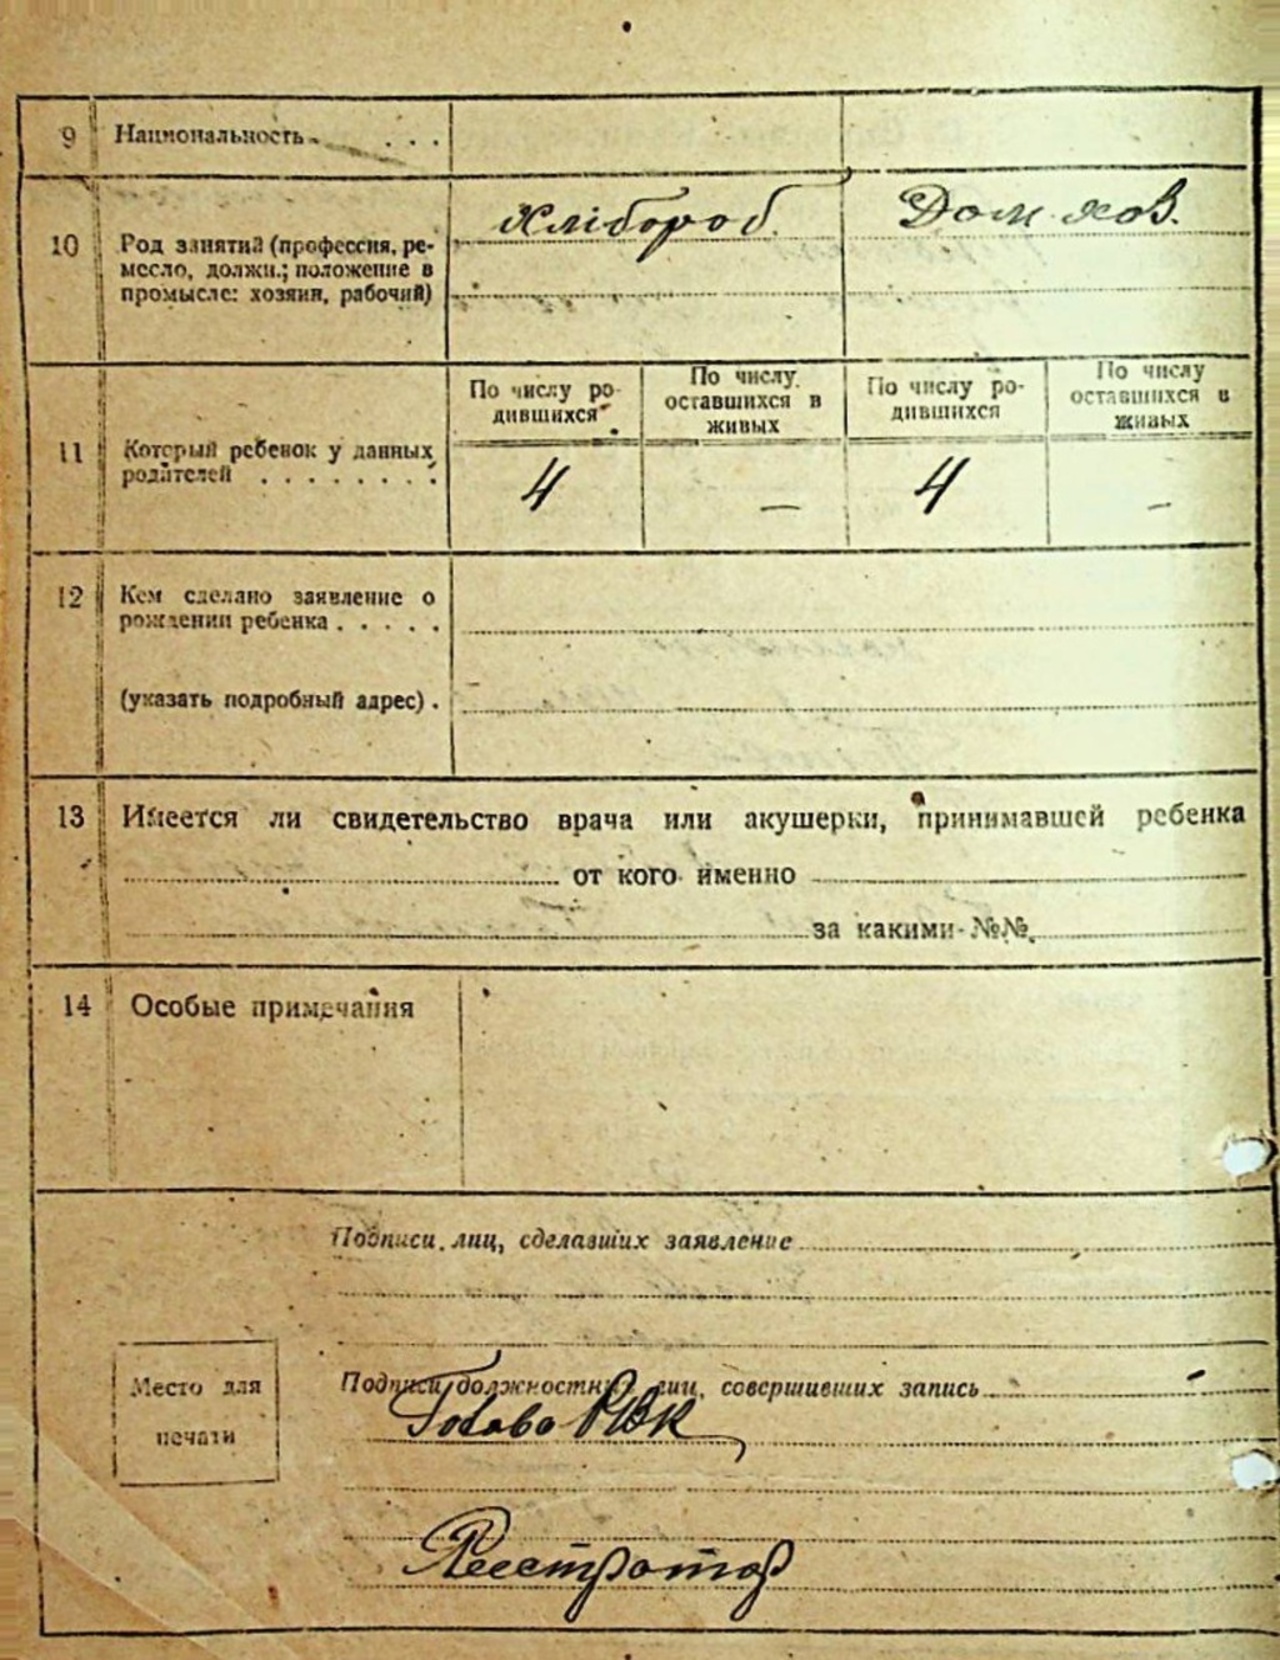 9 Национальность . . . .
Хлібороб. Дом. хоз.
10 Род занятий (профессия, ре-
месло, должн.; положение в
промысле: хозяин, рабочий)
По числу ро-
дившихся
По числу
оставшихся в
живых
По числу ро-
дившихся
По числу
оставшихся в
живых
11 Который ребенок у данных
родителей . . . . . . . .
4 — 4 —
12 Кем сделано заявление о
рождении ребенка . . . . .
(указать подробный адрес) .
13 Имеется ли свидетельство врача или акушерки, принимавшей ребенка
от кого именно
за какими №№
14 Особые примечания
Подписи лиц, сделавших заявление
Место для
печати
Подписи должностных лиц, совершивших запись
Голова РВК
Реестратор